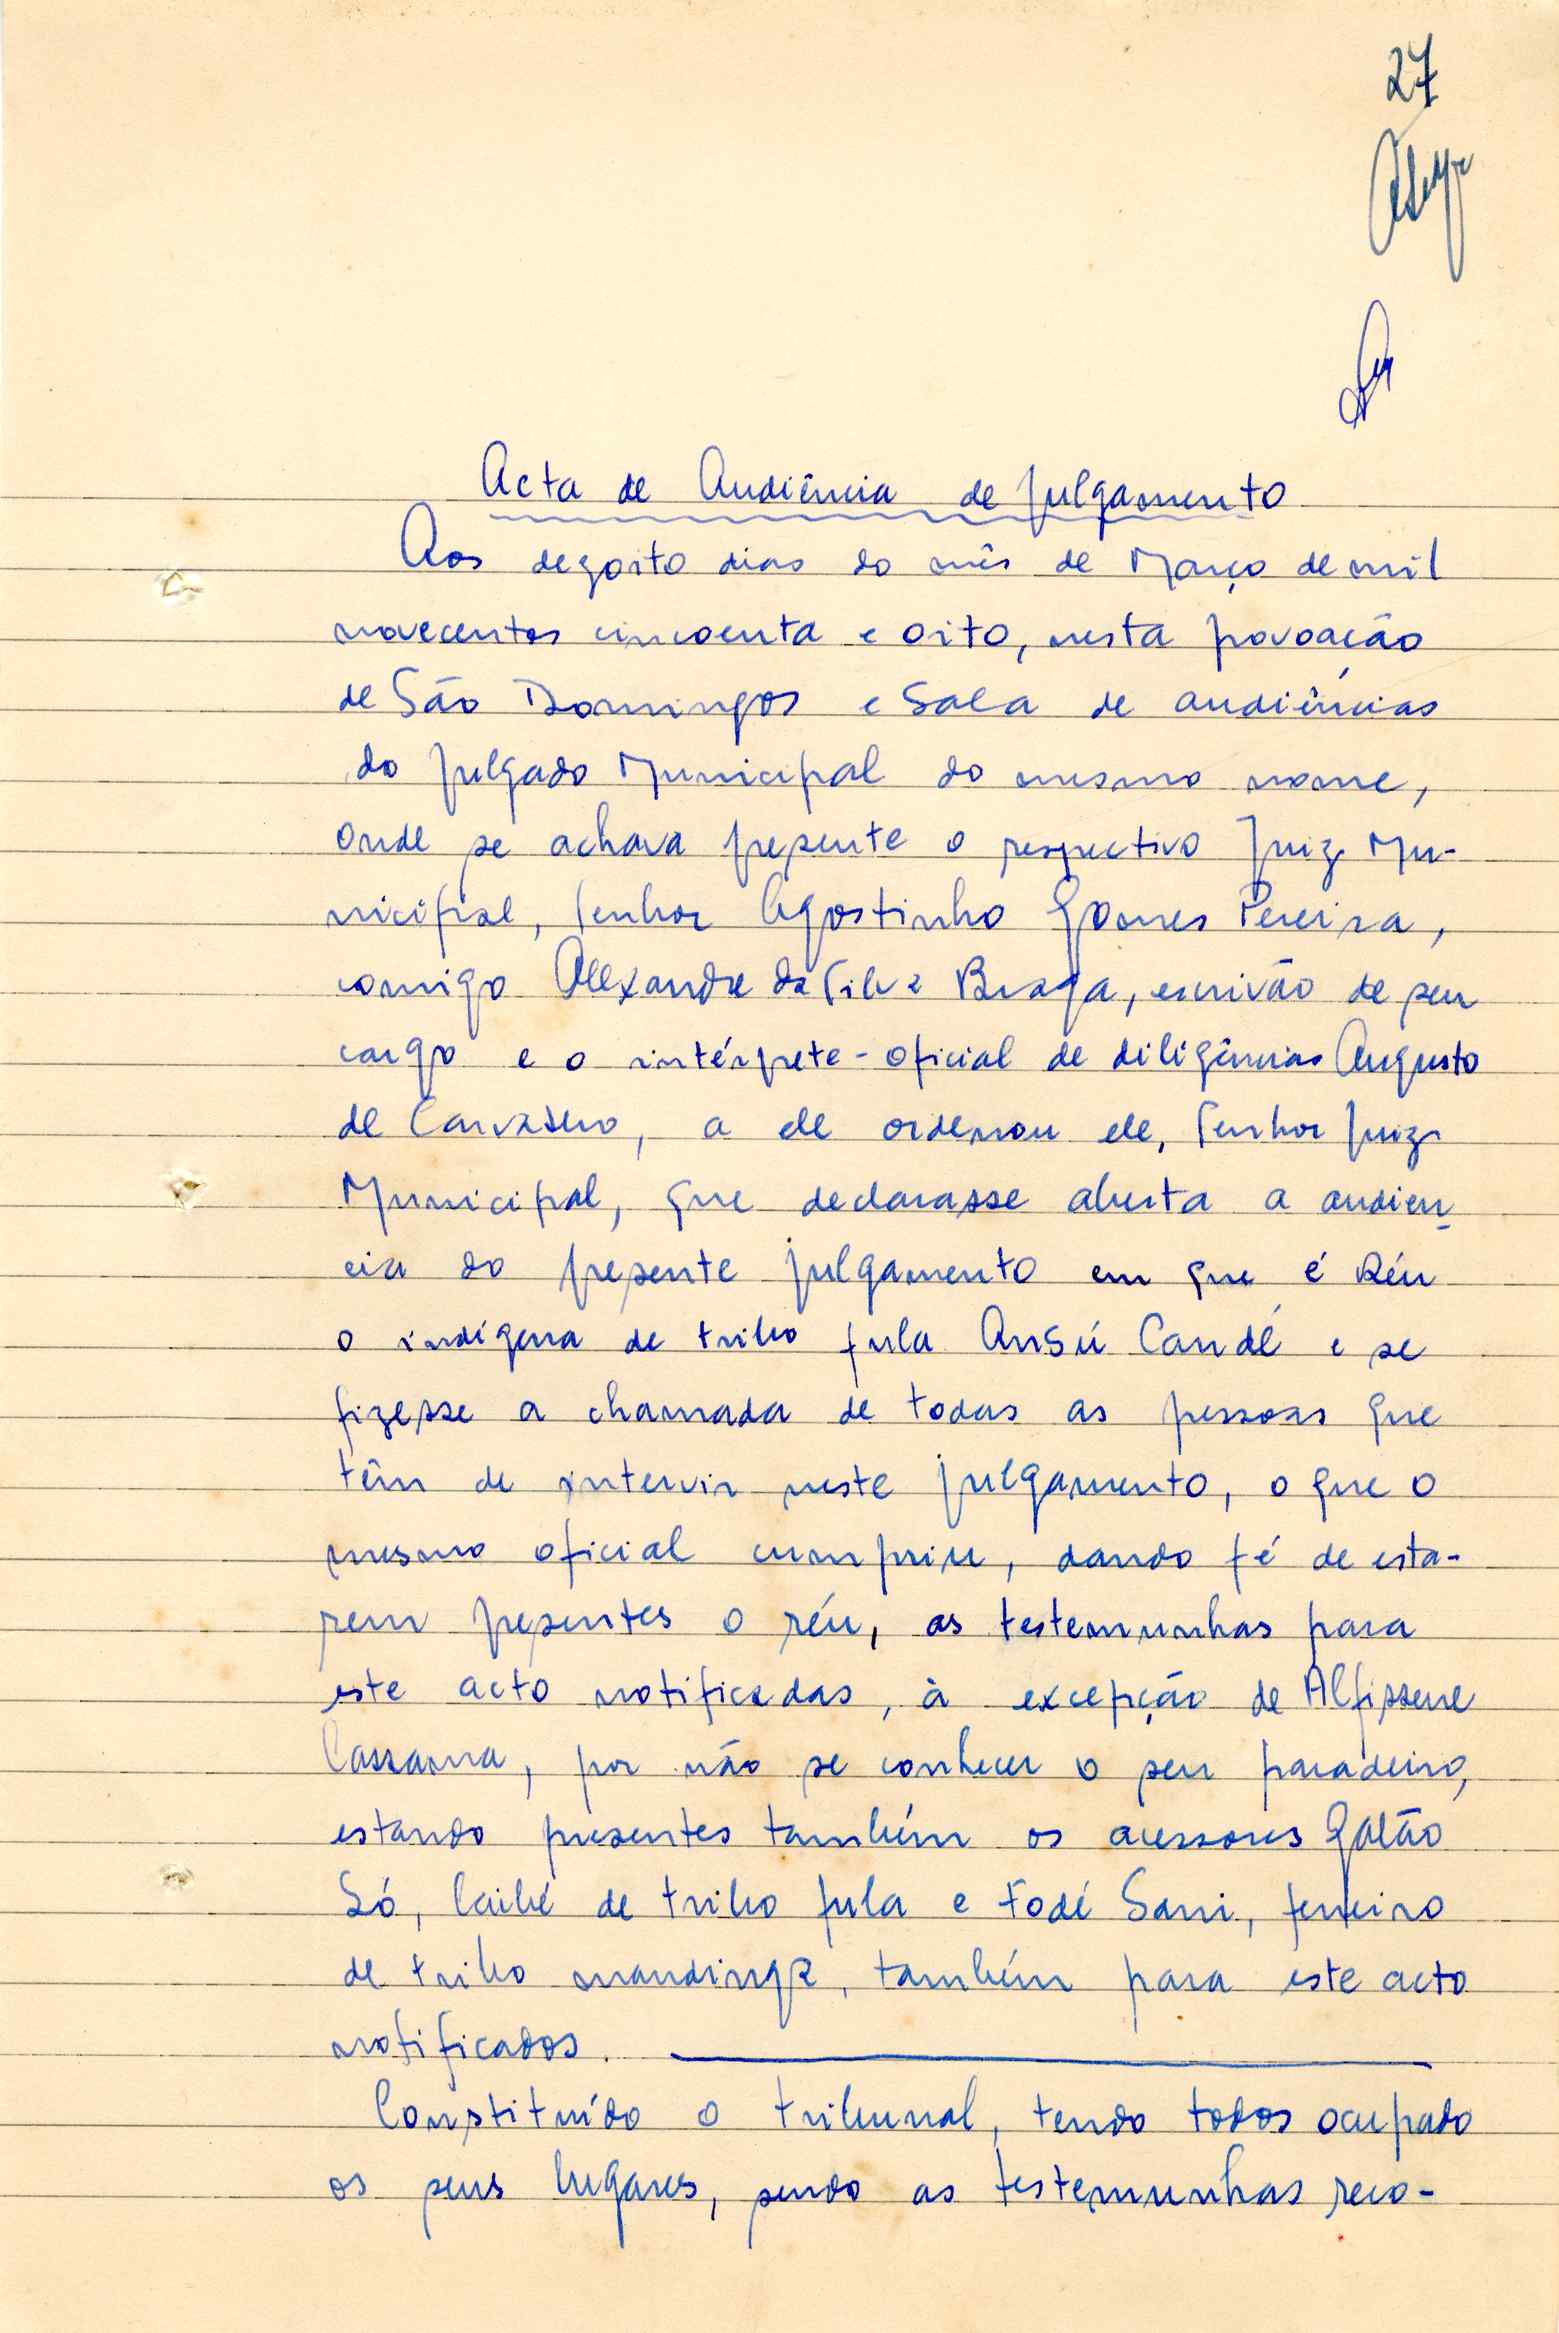 27
Acta de Audiência de Julgamento
Aos dezoito dias do mês de Março de mil
novecentos cincoenta e oito, nesta povoação
de São Domingos e sala de audiências
do Julgado Municipal do mesmo nome,
onde se achava presente o respectivo Juiz Mu-
nicipal, Senhor Agostinho Gomes Pereira,
comigo Alexandre da Silva Braga, escrivão de seu
cargo e o intérprete-oficial de diligências Augusto
de Carvalho, a ele ordenou ele, Senhor Juiz
Municipal, que declarasse aberta a audien-
cia do presente julgamento em que é Réu
o indígena de tribo fula Ansú Candé e se
fizesse a chamada de todas as pessoas que
têm de intervir neste julgamento, o que o
mesmo oficial cumpriu, dando fé de esta-
rem presentes o réu, as testemunhas para
este acto notificadas, à excepção de Alfissene
Cassama, por não se conhecer o seu paradeiro,
estando presentes também os acessores Galão
Só, Caibé de tribo fula e Fodé Sani, ferreiro
de tribo mandinga, também para este acto
notificados.
Constituído o tribunal, tendo todos ocupado
os seus lugares, sendo as testemunhas reco-